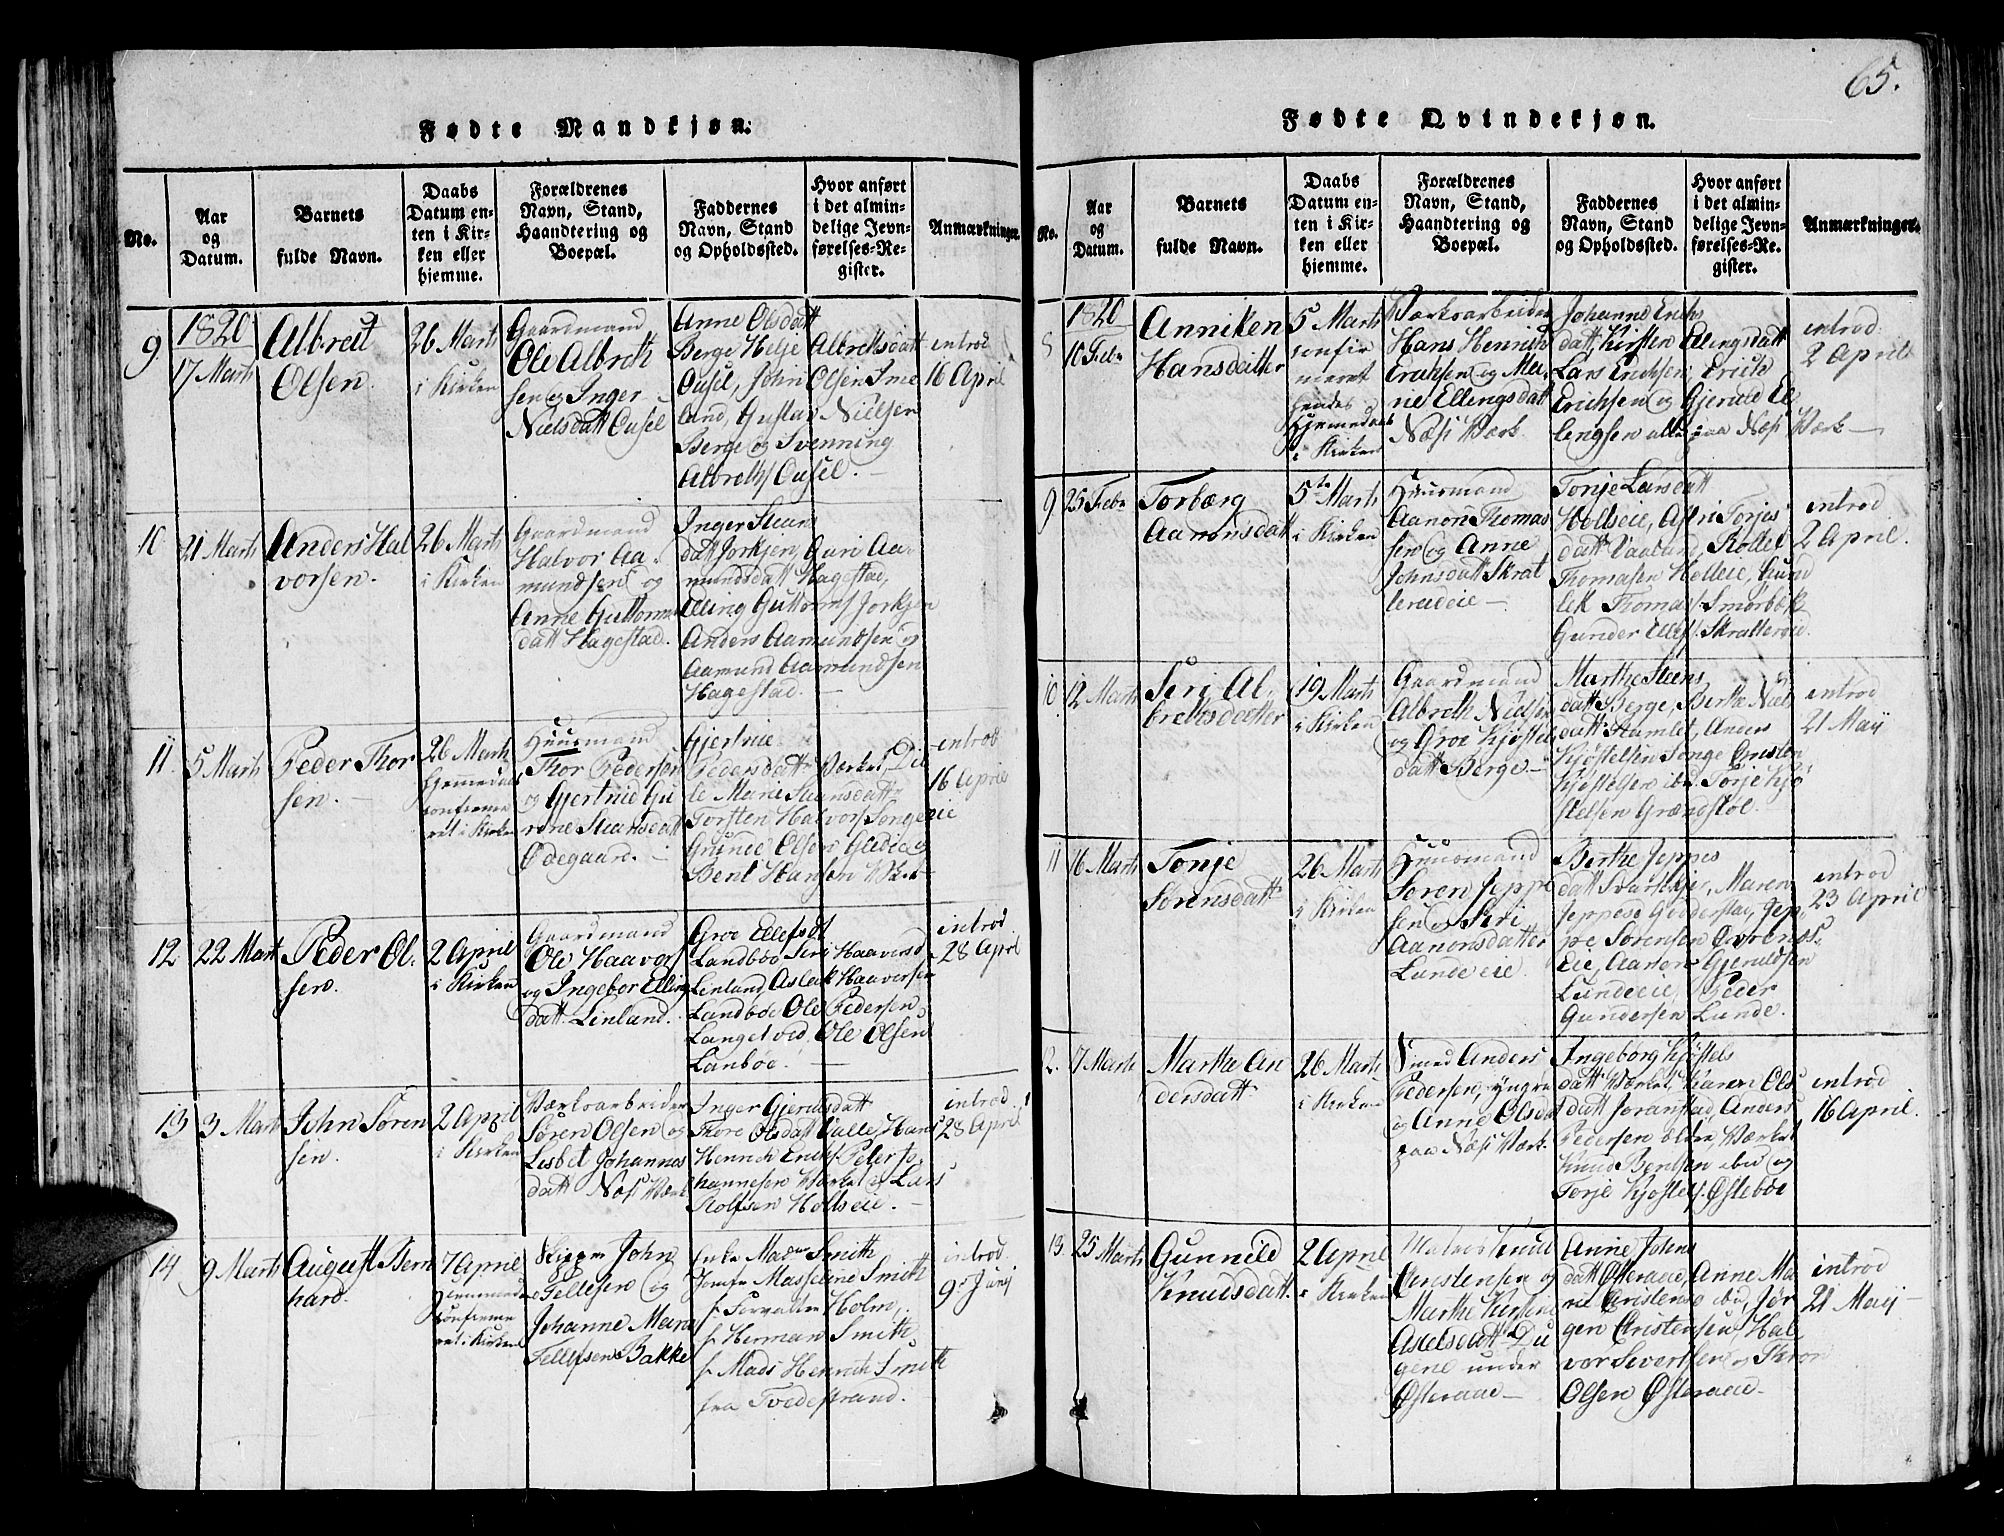 65.
Fødte Mandkjøn.
No.
Aar
og
Datum.
Barnets
fulde Navn.
Daabs
Datum en-
ten i Kir-
ken eller
hjemme.
Forældrenes
Navn, Stand,
Haandtering og
Boepæl.
Faddernes
Navn, Stand
og Opholdssted.
Hvor anført
i det almin-
delige Jevn-
førelses-Re-
gister.
Anmærkninger.
9
1820
17 Marts
Albret
Olsen.
26 Marts
i Kirken
Gaardmand
Ole Albreth
sen og Inger
Nielsdatt Ousel
Anne Olsdatt
Berge Helje Albrethsdatt
Ousel, John Olsen Sme
land, Gustav Nielsen
Berge og Svenning
Albreths Ousel.
introd
16 April
10
21 Marts
Anders Hal
vorsen.
26 Marts
i Kirken
Gaardmand
Halvor Aa-
mundsen og
Anne Guttorms
datt Hagestad.
Inger Steens
datt Jorkjen, Guri Aa-
mundsdatt Hagestad,
Elling Guttorms Jorkjen
Anders Aamundsen og
Aamund Aamundsen
Hagestad.
11
5 Marts
Peder Thor
sen.
26 Marts
Hjemedøbt
confirme
ret i Kirken
Huusmand
Thor Pedersen
og Gjertrud Gu
rine Steansdatt
Ødegaard.
Gjertrue
Pedersdatt Værket
Marie Steansdatt
Torsten Halvors Songe eie
Grunde Olsen
Bent Hansen
introd
16 April
12
22 Marts
Peder Ol-
sen.
2 April
i Kirken
Gaardmand
Ole Haavors
og Ingebor Elling
datt. Linland.
Groe Ellefsdt
Landboe Seri Haavorsd
Linland Aslak Haavorsen
Landboe Ole Pedersen
Langetvid, Ole Olsen
Lanboe.
introd
28 April
13
3 Marts
John Søren
sen.
2 April
i Kirken
Værksarbeider
Søren Olsen og
Lisbet Johannes
datt Næss Værk
Inger Gjerulsdatt
Thore Olsdatt Halle Hans
Henrich Erichs. Peter Jo
hannesen Værket og Lars
Rolfsen Holtseie.
introd
28 April
14
9 Marts
August Bern
hard.
7 April
Hjemmedø
confirme
ret i Kirken
Skipper John
Tellefsen og
Johanne Marie
Tellefsen Bakke
Smith
Jomfr Masseline Smith
Forvalter Holm,
Herman Smith
Mads Henrich Smith
fra Tvedestrand.
introd
9 Junij
Fødte Qvindekjøn.
No.
Aar
og
Datum.
Barnets
fulde Navn.
Daabs
Datum en-
ten i Kir-
ken eller
hjemme.
Forældrenes
Navn, Stand,
Haandtering og
Boepæl.
Faddernes
Navn, Stand
og Opholdssted.
Hvor anført
i det almin-
delige Jevn-
førelses-Re-
gister.
Anmærkninger.
8
1820
10 Febr
Anniken
Hansdatter
5 Marts
confir
meret
hendes
Hjemedaab
i Kirken
Værksarbeider
Hans Henrich
Erichsen og Ma-
rie Ellingsdatt
Næss Værk.
Johanne Erichs
datt, Kirsten Ellingsdatt
Lars Erichsen, Erich
Erichsen og Gjerulf El
lengsen alle paa Næss Værk
introd.
2 April
9
25 Febr
Torbærg
Aanonsdatt
5te Marts
i Kirken
Huusmand
Aanon Thomas
sen og Anne
Johnsdatt Skrat
lereideie
Tonje Larsdatt
Holtseie, Torjes
datt Vaaland, Rollef
Thomasen Holteie,
Thomas. Smørbek
Gunder Ellefs. Skratlereid.
introd
2 April.
10
12 Marts
Seri Al-
brethsdatter
19 Marts
i Kirken
Gaardmand
Albreth Nielsen
og Groe Kjøstels
datt Berge
Marthe Steens
datt Berge, Berthe Niels
datt. Anders
Kjøstelsen Songe Cristen
Kjøstelsen ibd Torje Kjø
stelsen Grændstøl.
introd
21 Maij
11
16 Marts
Tonje
Sørensdatt
26 Marts
i Kirken
Huusmand
Søren Jeppe
sen og Seri
Aanonsdatter
Lunde eie.
Berthe Jeppes
datt Svartskjer, Maren
Jeppesd Godderstad, Jep-
pe Sørensen
eie, Aanon Gjerulfsen
Lundeeie, Peder
Gundersen Lunde.
introd
23 April
12.
17 Marts
Marthe An
dersdatt.
26 Marts
i Kirken
Smed Anders
Pedersen, yngre
og Anne Olsda
paa Næss Værk.
Ingeborg Kjøstels
datt Værket, Karen Ols
datt Joranstad, Anders
Pedersen ældre, Værket
Knud Bentsen ibd og
Torje Kjøstels. Østeboe
introd
16 April.
13.
25 Marts
Gunnild
Knudsdatt.
2 April
i Kirken
Matros Knud
Christensen og
Marthe Kirstine
Axelsdatt Du
gene under
Østeraae
Anne Johns
datt Østeraae, Anne Ma
rie Cristensd ibd, Jør
gen Cristensen, Hal
vor Sivertsen og Thron
Olsen Østeraae.
introd
21 Maij